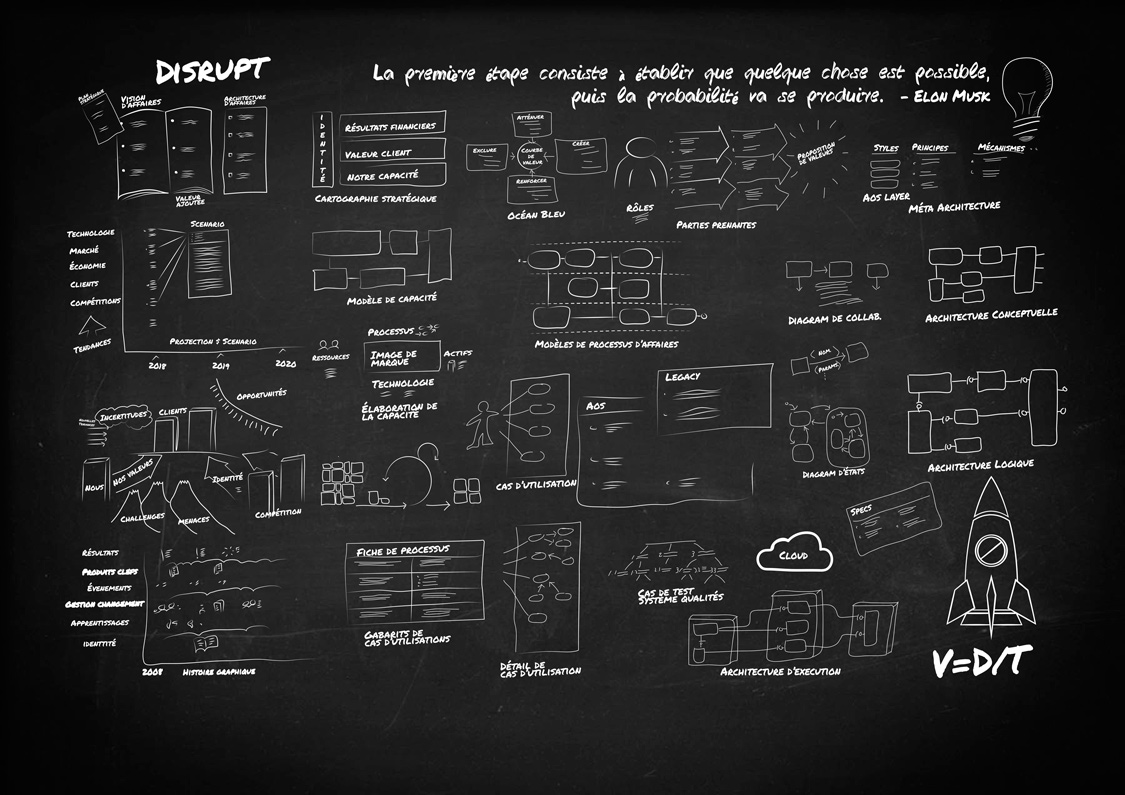 DISRUPT
La première étape consiste à établir que quelque chose est possible,
puis la probabilité va se produire. - ELON MUSK
VISION
D'AFFAIRES
ARCHITECTURE
D'AFFAIRES
VALEUR
AJOUTÉE
IDENTITÉ
RÉSULTATS FINANCIERS
VALEUR CLIENT
NOTRE CAPACITÉ
CARTOGRAPHIE STRATÉGIQUE
ATTÉNUER
EXCLURE
COURBE
DE
VALEUR
CRÉER
RENFORCER
OCÉAN BLEU
RÔLES
PARTIES PRENANTES
PROPOSITION
DE VALEURS
STYLES
PRINCIPES
MÉCANISMES
AOS LAYER
MÉTA ARCHITECTURE
TECHNOLOGIE
MARCHÉ
ÉCONOMIE
CLIENTS
COMPÉTITIONS
TENDANCES
SCENARIO
PROJECTION $ SCENARIO
2018
2019
2020
MODÈLE DE CAPACITÉ
MODÈLES DE PROCESSUS D'AFFAIRES
DIAGRAM DE COLLAB.
ARCHITECTURE CONCEPTUELLE
PROCESSUS
RESSOURCES
IMAGE DE
MARQUE
ACTIFS
TECHNOLOGIE
ÉLABORATION DE
LA CAPACITÉ
OPPORTUNITÉS
INCERTITUDES
CLIENTS
NOUS
NOS VALEURS
IDENTITÉ
CHALLENGES
MENACES
COMPÉTITION
CAS D'UTILISATION
AOS
LEGACY
NOM
(PARAMS)
DIAGRAM D'ÉTATS
ARCHITECTURE LOGIQUE
SPECS
RÉSULTATS
PRODUITS CLEFS
ÉVENEMENTS
GESTION CHANGEMENT
APPRENTISSAGES
IDENTTITÉ
2008
HISTOIRE GRAPHIQUE
FICHE DE PROCESSUS
GABARITS DE
CAS D'UTILISATIONS
DÉTAIL DE
CAS D'UTILISATION
CAS DE TEST
SYSTÈME QUALITÉS
CLOUD
ARCHITECTURE D'EXECUTION
V=D/T